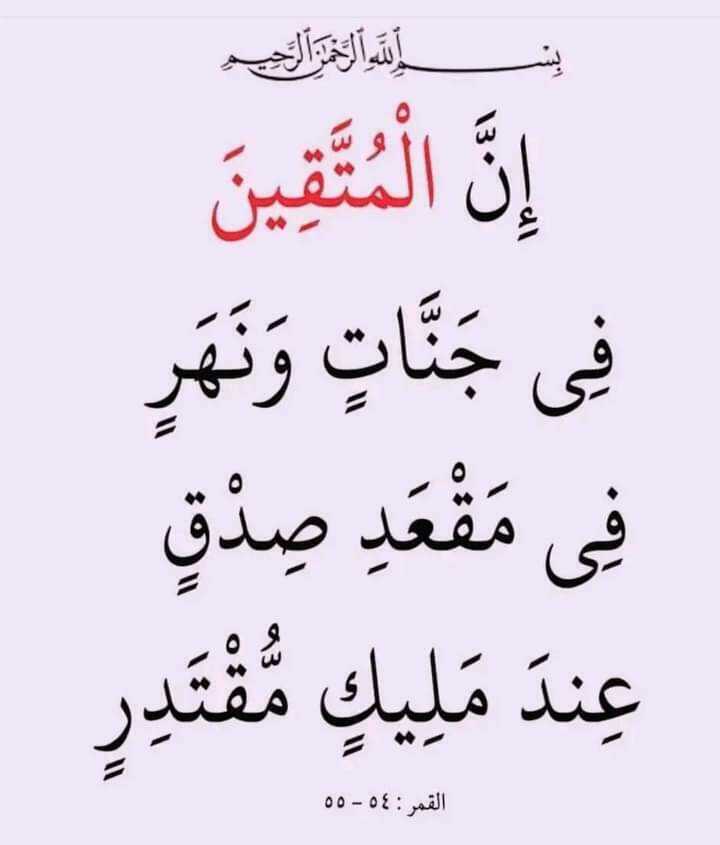 بِسْمِ اللَّهِ الرَّحْمَٰنِ الرَّحِيمِ
إِنَّ الْمُتَّقِينَ
فِى جَنَّاتٍ وَنَهَرٍ
فِى مَقْعَدِ صِدْقٍ
عِندَ مَلِيكٍ مُّقْتَدِرٍ
القمر : ٥٤ – ٥٥